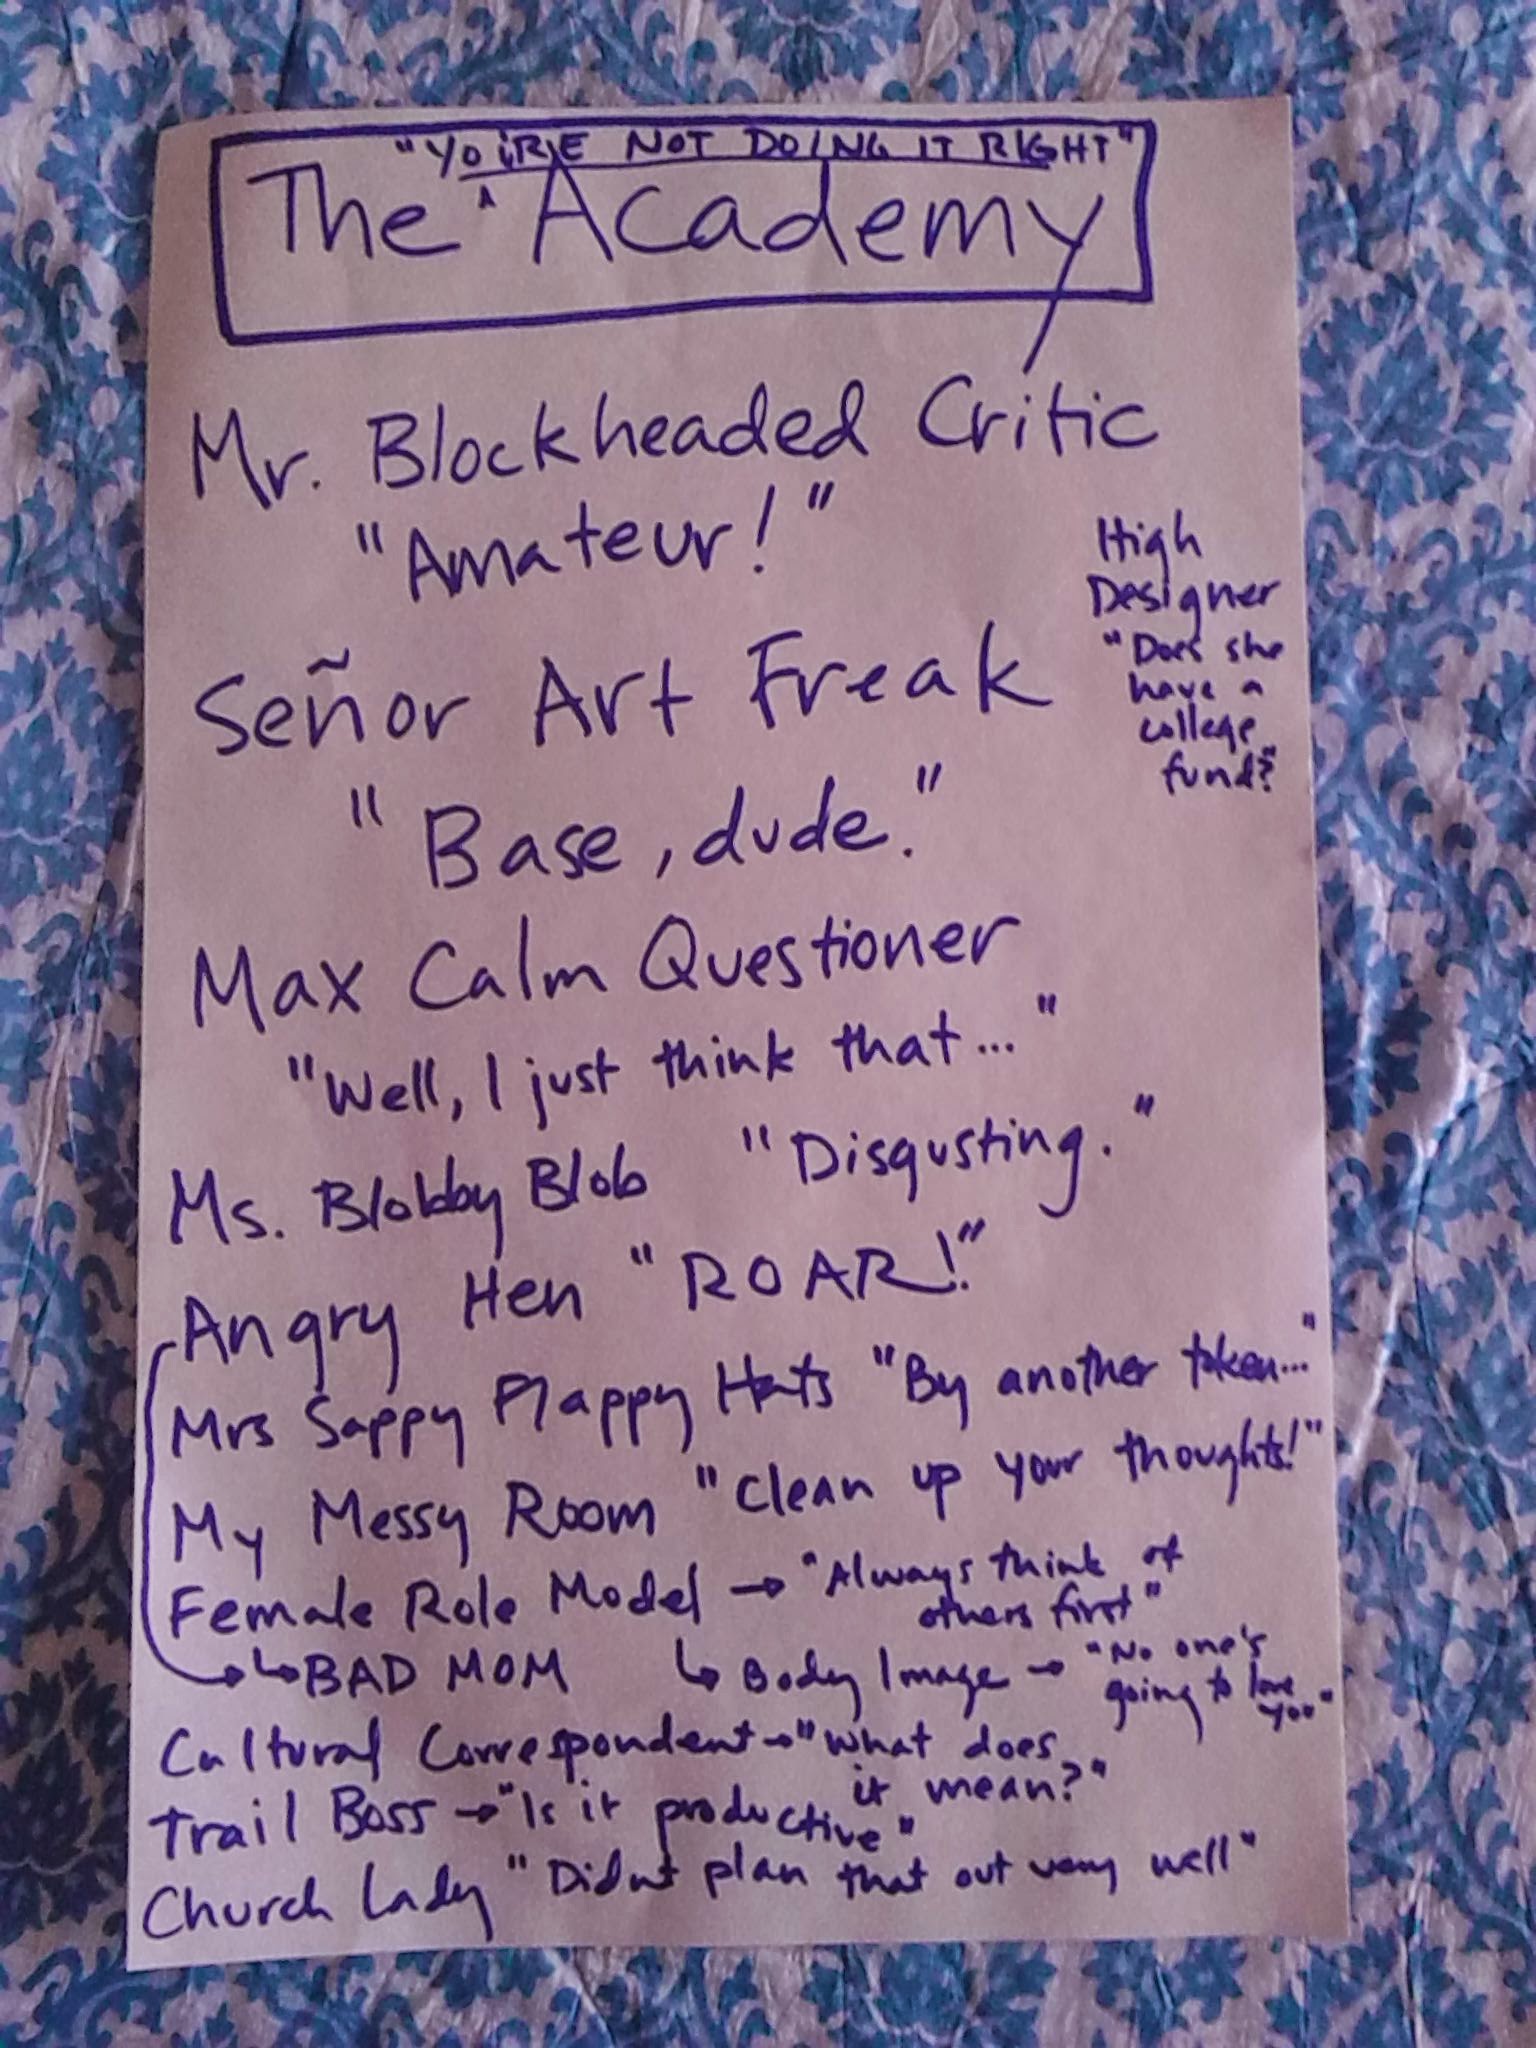 "YOU'RE NOT DOING IT RIGHT"
The ^ Academy
Mr. Blockheaded Critic
"Amateur!"
High
Designer
"Does she
have a
college
fund?"
Señor Art Freak
"Base, dude."
Max Calm Questioner
"Well, I just think that..."
Ms. Blobby Blob "Disgusting."
Angry Hen "ROAR!"
Mrs Sappy Flappy Hats "By another token..."
My Messy Room "Clean up your thoughts!"
Female Role Model → "Always think of
others first"
↳ BAD MOM ↳ Body Image → "No one's
going to love
you"
Cultural Correspondent → "What does
it mean?"
Trail Boss → "Is it productive"
Church Lady "Didn't plan that out very well"